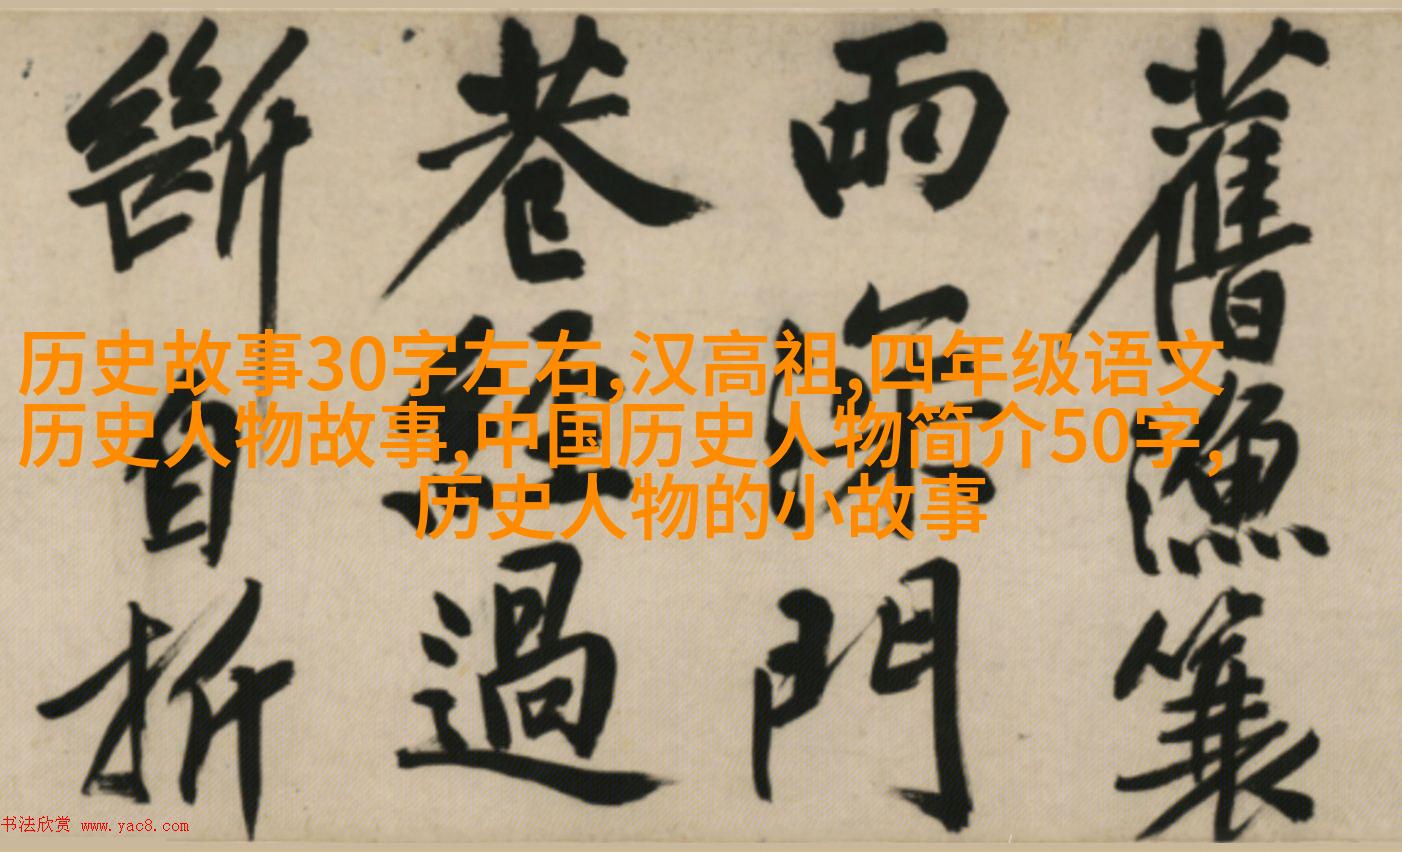 舊漁簑
雨門
巷經過
斷自折
历史故事30字左右,汉高祖,四年级语文
历史人物故事,中国历史人物简介50字,
历史人物的小故事
书法欣赏 www.yac8.com